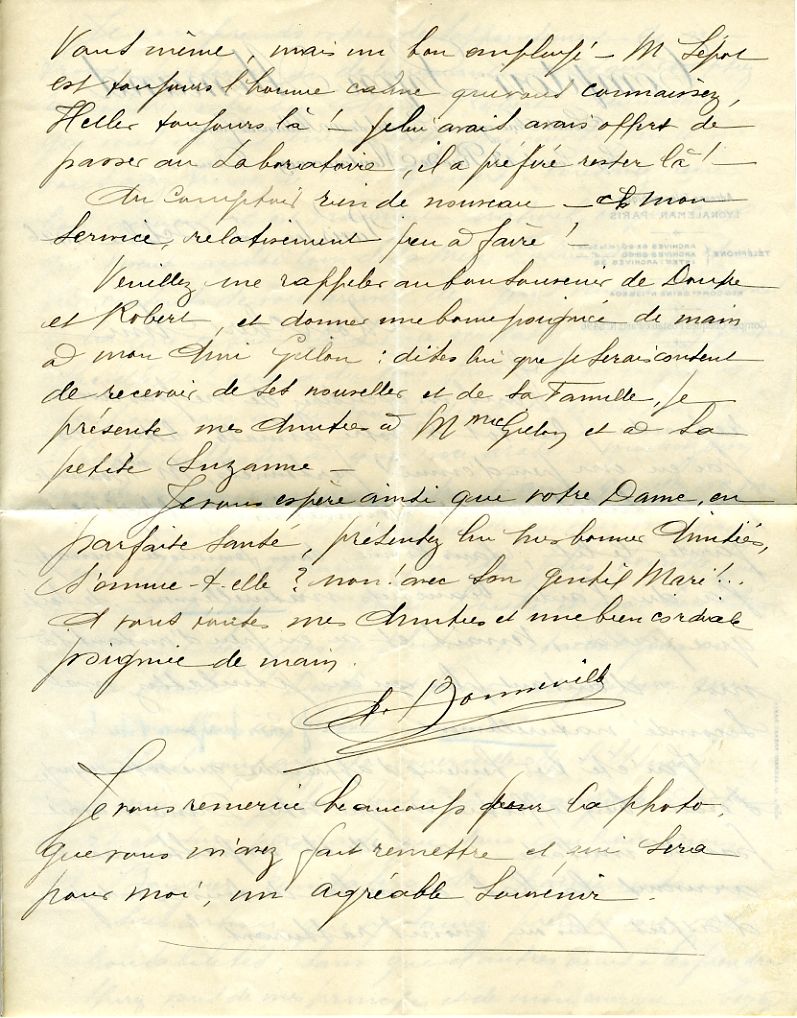 Vous même, mais un bon employé – M Lépol
est toujours l'homme calme que vous connaissez,
Heller toujours là ! – je lui avait avais offert de
passer au Laboratoire, il a préféré rester là ! –
Au Comptoir rien de nouveau – et mon
Service, relativement peu à faire ! –
Veuillez me rappeler au bon souvenir de
et Robert, et donner une bonne poignée de main
à mon Ami Gilon : dites lui que je serais content
de recevoir de ses nouvelles et de sa Famille, je
présente mes Amitiés à Mme Gilon et à la
petite Suzanne –
Je vous espère ainsi que votre Dame, en
parfaite santé, présentez lui mes bonnes Amitiés,
S'ennuie-t-elle ? non ! avec son gentil Mari !..
A vous toutes mes Amitiés et une bien cordiale
poignée de main.
Bonneville
Je vous remercie beaucoup pour la photo,
que vous m'avez fait remettre et qui sera
pour moi, un agréable Souvenir.
LYONALEMAN-PARIS
TÉLÉPHONE